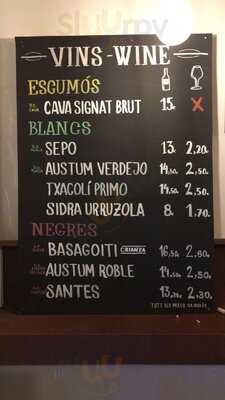 Sluurpy
VINS - WINE
ESCUMÓS
CAVA SIGNAT BRUT 15.- X
BLANCS
SEPO 13. 2,20.
AUSTUM VERDEJO 14,50. 2,50.
TXACOLÍ PRIMO 14,50. 2,50.
SIDRA URRUZOLA 8. 1,70.
NEGRES
BASAGOITI CRIANZA 16,50. 2,60.
AUSTUM ROBLE 14,50. 2,50.
SANTES 2,30.